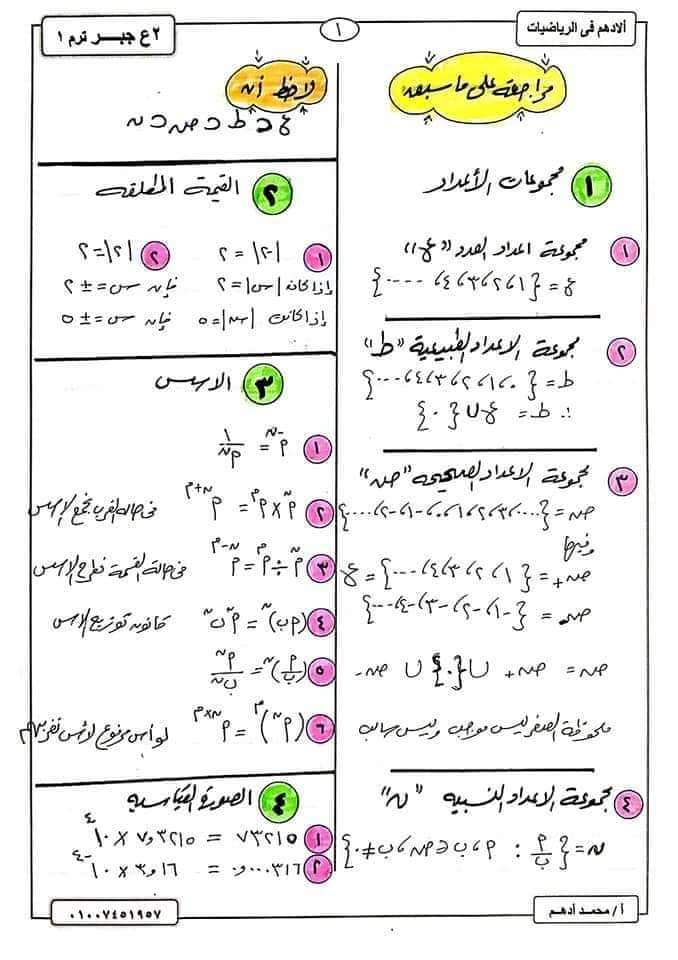 ألادهم فى الرياضيات
١
٢ع جبـر ترم ١
مراجعة على ما سبق
١ مجموعات الأعداد
١ مجموعة اعداد العدد "ع"
ع = {١، ٢، ٣، ٤، ....}
٢ مجموعة الاعداد الطبيعية "ط"
ط = {٠، ١، ٢، ٣، ٤، ....}
∴ ط = ع ∪ {٠}
٣ مجموعة الاعداد الصحيحه "صـ"
صـ = {....، ٣، ٢، ١، ٠، -١، -٢، ....}
وفيها
صـ+ = {١، ٢، ٣، ٤، ....} = ع
صـ- = {-١، -٢، -٣، -٤، ....}
صـ = صـ+ ∪ {٠} ∪ صـ-
ملحوظة الصفر ليس موجب وليس سالب
٤ مجموعة الاعداد النسبيه "ن"
ن = {أ/ب : أ، ب ∈ صـ، ب ≠ ٠}
لاحظ أن
ع ⊂ ط ⊂ صـ ⊂ ن
٢ القيمة المطلقه
١ |-٢| = ٢ ٢ |٢| = ٢
إذا كان |س| = ٢ فإن س = ± ٢
إذا كانت |س| = ٥ فإن س = ± ٥
٣ الاسس
١ أ⁻ⁿ = ١/أⁿ
٢ أⁿ × أᵐ = أ^(ن+م) فى حالة الضرب نجمع الاسس
٣ أⁿ ÷ أᵐ = أ^(ن-م) فى حالة القسمة نطرح الاسس
٤ (أب)ⁿ = أⁿ بⁿ قانون توزيع الاس
٥ (أ/ب)ⁿ = أⁿ/بⁿ
٦ (أⁿ)ᵐ = أ^(ن×م) لو أس مرفوع لأس نضربهم
٤ الصورة القياسيه
١ ٧٣٢١٥ = ٧٫٣٢١٥ × ١٠^٤
٢ ٠٫٠٠٠٣١٦ = ٣٫١٦ × ١٠^-٤
أ / محمد أدهم
٠١٠٠٧٤٥١٩٥٧